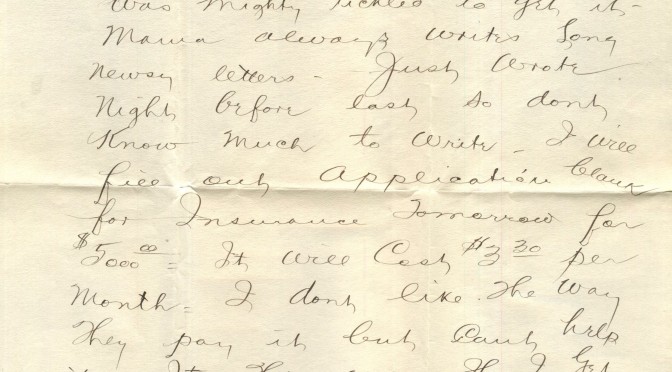 Was Mighty tickled to get it -
Mama always writes Long
newsy letters - Just Wrote
Night before last so dont
Know Much to Write - I will
fill out Application blank
for Insurance Tomorrow for
$5000 00 = It will Cost $3 30 per
Month = I dont like. The Way
They pay it but Cant help
It I Get